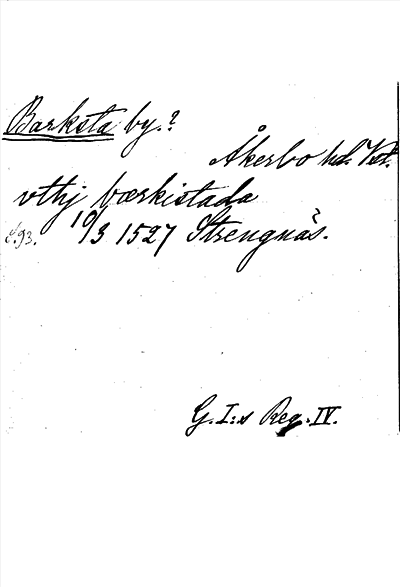 Barksta by.?
Åkerbo hd. Vstm.
vthj bærkistada
s.93. 10/3 1527 Strengnäs.
G. I:s Reg. IV.